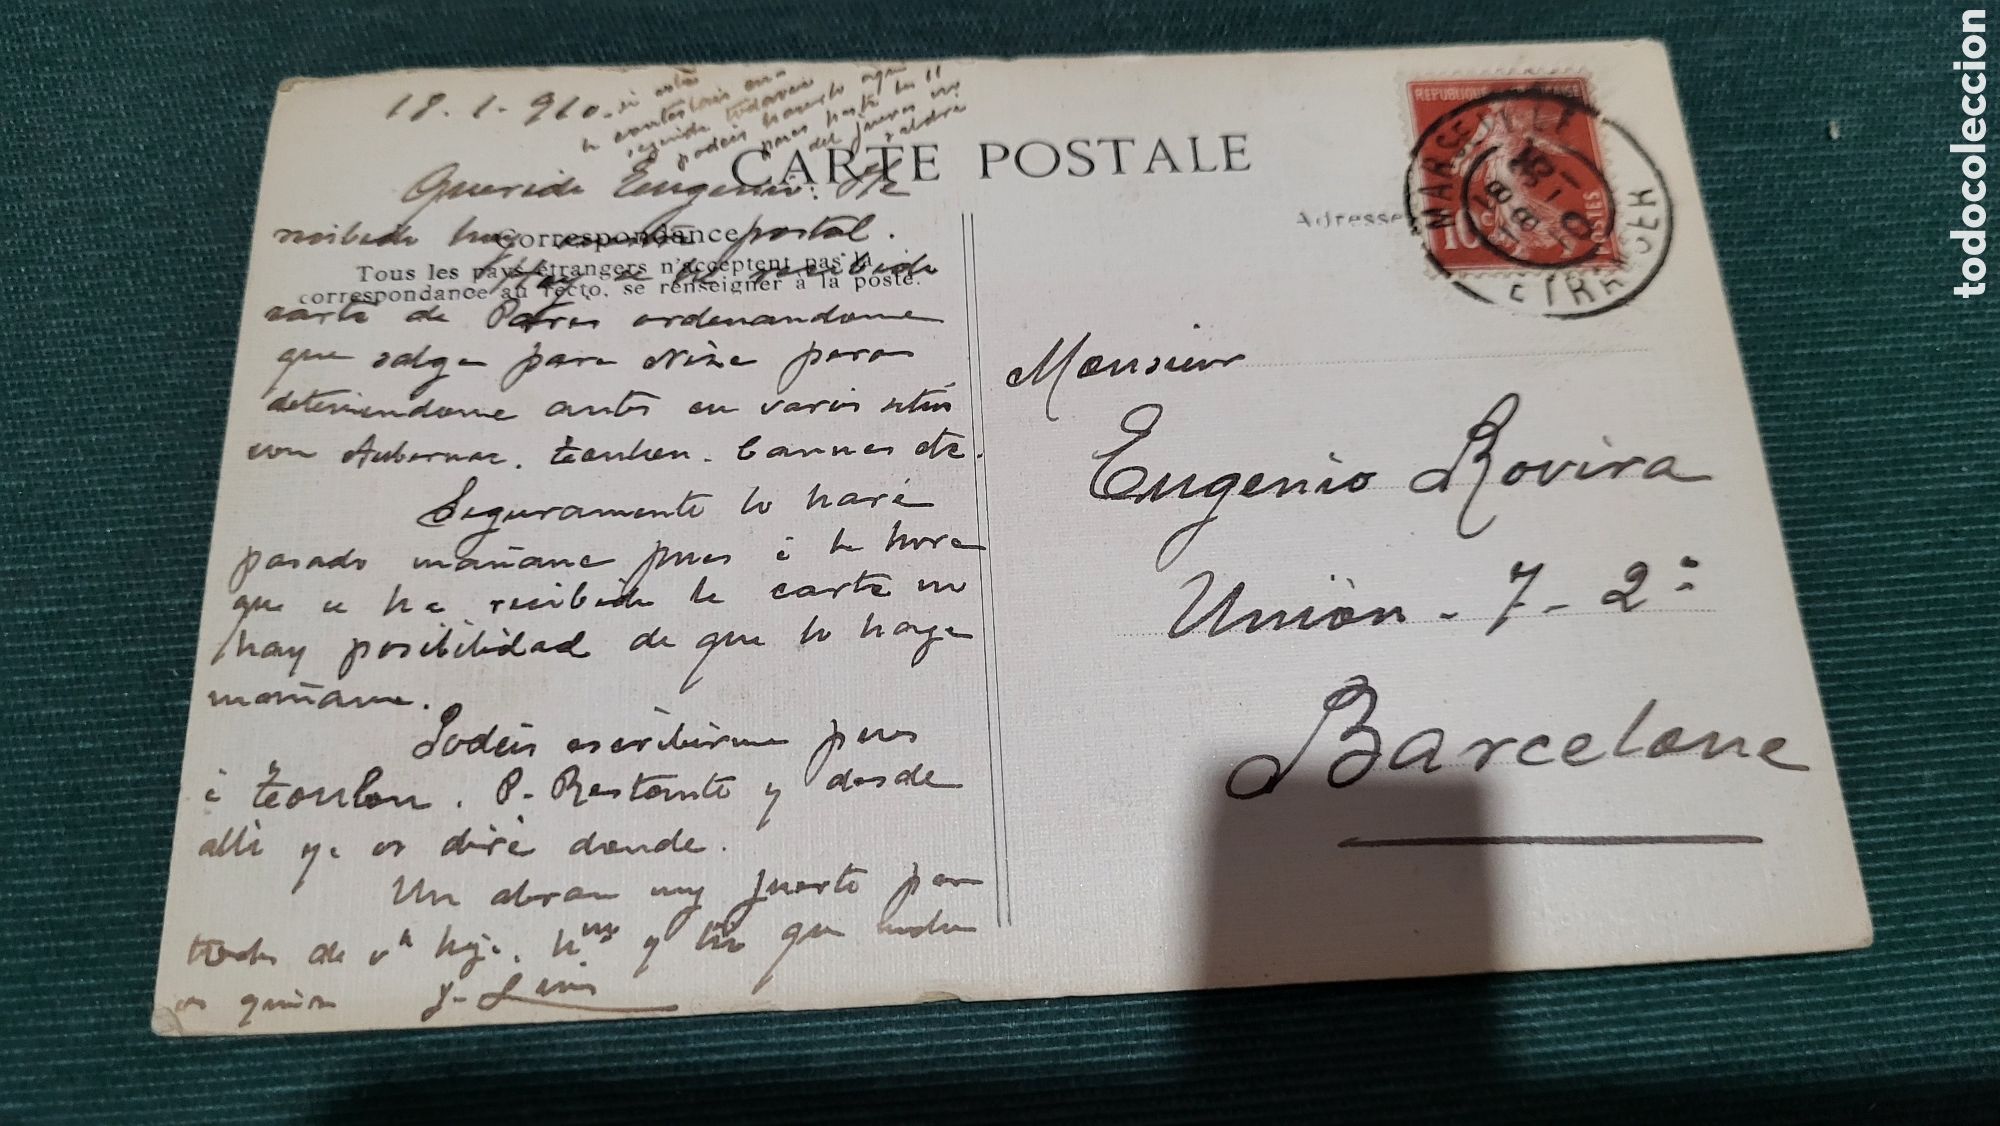 18-1-910.
si esta
la contestais en
seguida todavia
podeis hacerlo aqui
pues hasta las 11
del jueves no
saldré
CARTE POSTALE
Querido Eugenio: He
recibido hoy postal.
Correspondance
Tous les pays étrangers n'acceptent pas la
correspondance au recto, se renseigner à la poste.
Hoy se ha recibido
carta de Paris ordenandome
que salga para Niza pero
deteniendome antes en varios sitios
con Aubernac. Toulon. Cannes etc.
Seguramente lo haré
pasado mañana pues á la hora
que se ha recibido la carta no
hay posibilidad de que lo haga
mañana.
Podeis escribirme pues
á Toulon. P. Restante y desde
alli ya os diré donde.
Un abrazo muy fuerte para
todos de vº hijo. hno y tio que
os quiere J. Luis
Adresse
REPUBLIQUE FRANÇAISE
10c POSTES
MARSEILLE
18 -1 10
ETRANGER
Monsieur
Eugenio Rovira
Unión - 7 - 2º
Barcelone
todocoleccion